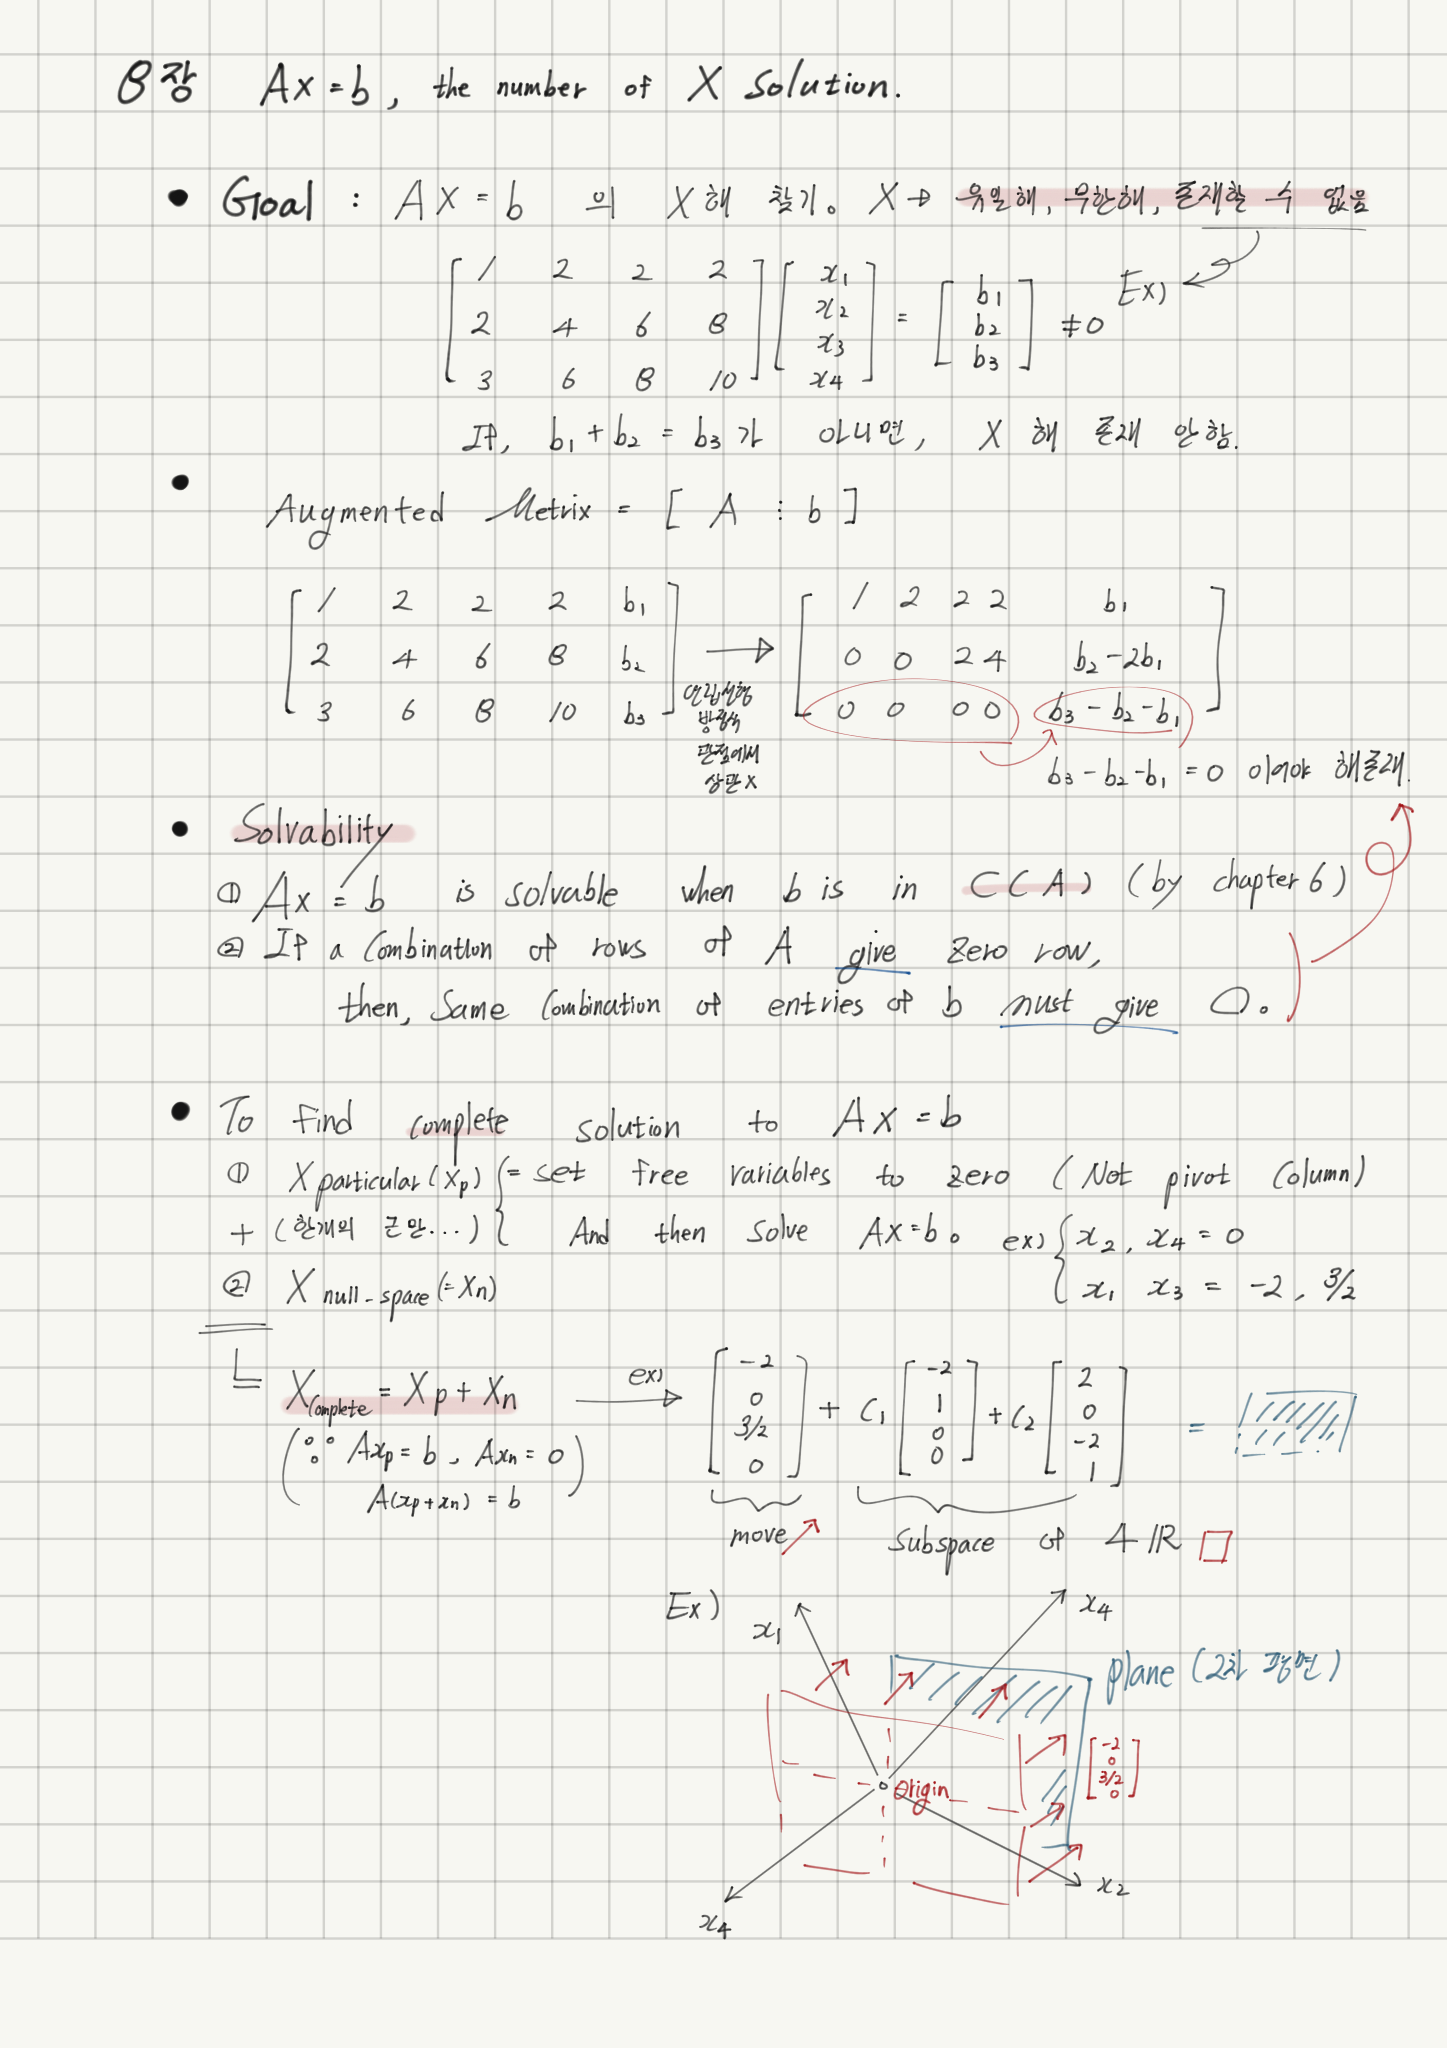 8장 Ax = b, the number of X Solution.
• Goal : AX = b 의 X 해 찾기。 X → 유일해, 무한해, 존재할 수 없음
[ 1 2 2 2 ] [ x₁ ] = [ b₁ ] ≠ 0 Ex)
[ 2 4 6 8 ] [ x₂ ] [ b₂ ]
[ 3 6 8 10 ] [ x₃ ] [ b₃ ]
[ x₄ ]
If, b₁ + b₂ = b₃ 가 아니면, X 해 존재 안함.
•
Augmented Metrix = [ A ⋮ b ]
[ 1 2 2 2 b₁ ] → [ 1 2 2 2 b₁ ]
[ 2 4 6 8 b₂ ] [ 0 0 2 4 b₂ - 2b₁ ]
[ 3 6 8 10 b₃ ] [ 0 0 0 0 b₃ - b₂ - b₁ ]
연립선형
방정식
관점에서
상관 X
b₃ - b₂ - b₁ = 0 이어야 해존재.
• Solvability
① Ax = b is solvable when b is in C(A) (by chapter 6)
② If a Combination of rows of A give zero row,
then, Same Combination of entries of b must give 0。
• To find complete solution to AX = b
① X particular (Xp) { = set free variables to zero (Not pivot Column)
+ (한개의 근만...) And then solve AX = b。 ex) { x₂, x₄ = 0
② X null-space (= Xn) x₁ x₃ = -2, 3/2
X Complete = Xp + Xn ex) → [ -2 0 3/2 0 ] + C₁ [ -2 1 0 0 ] + C₂ [ 2 0 -2 1 ] =
( ∵ Axp = b, Axn = 0 )
A(xp+xn) = b
move Subspace of 4 ℝ
Ex) x₁ x₄
plane (2차 평면)
[ -2 0 3/2 0 ]
origin
x₂
x₄